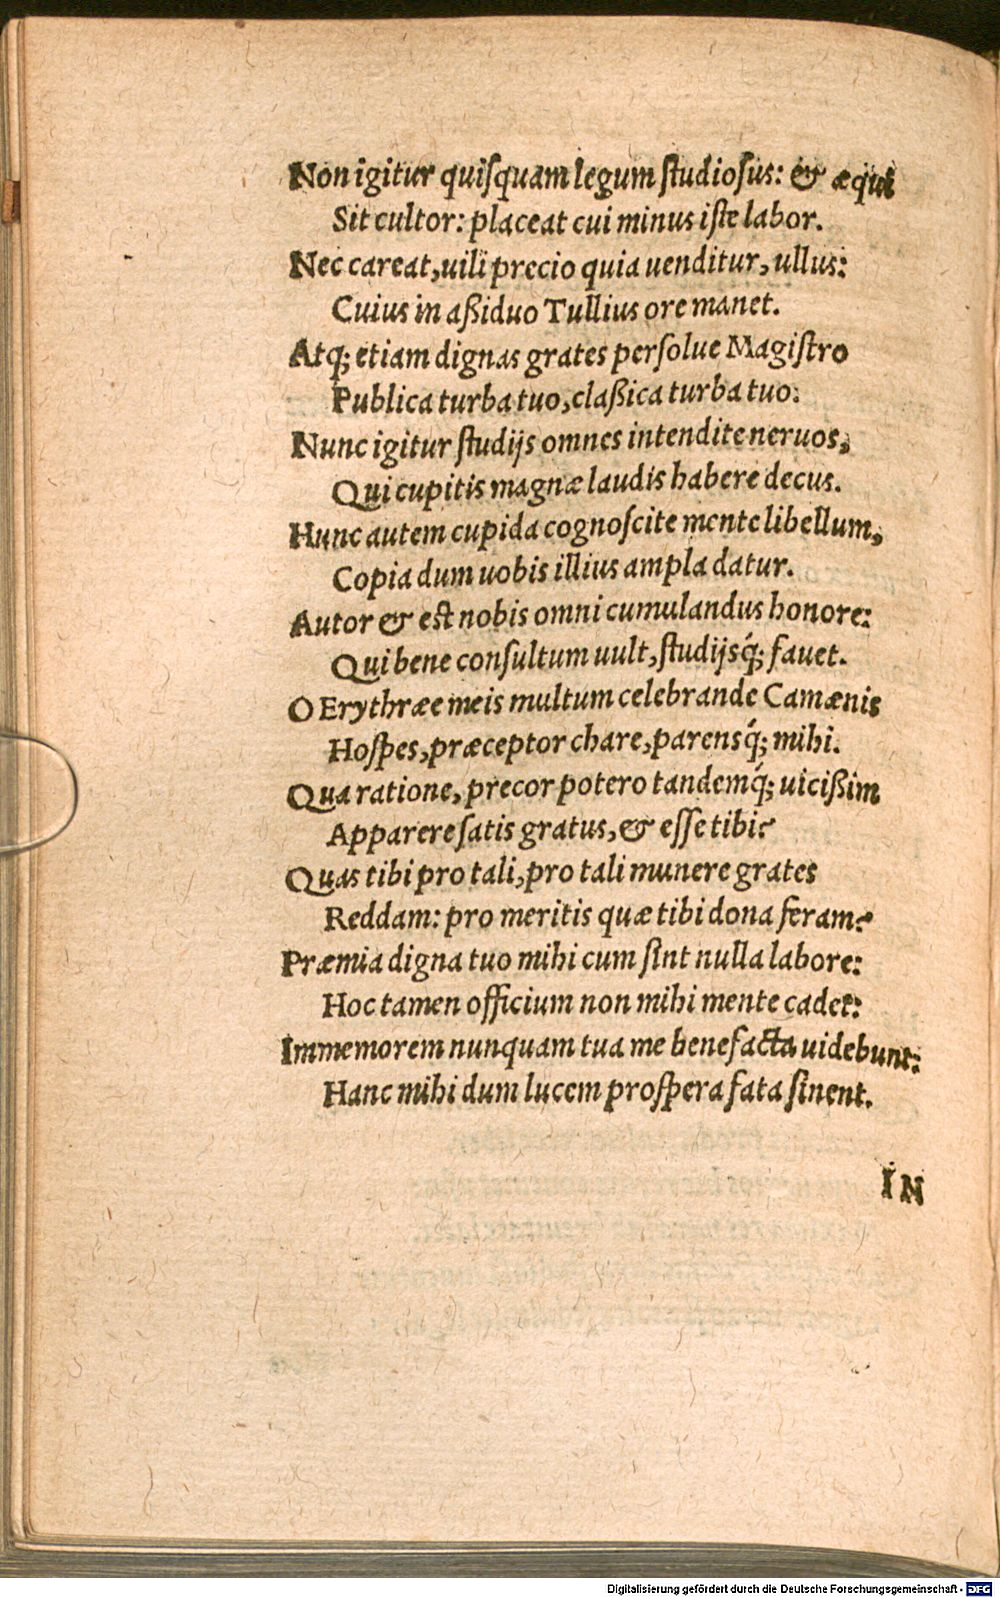 Non igitur quiſquam legum ſtudioſus: & æqui
Sit cultor: placeat cui minus iſte labor.
Nec careat, uili precio quia uenditur, ullus:
Cuius in aßiduo Tullius ore manet.
Atq́; etiam dignas grates perſolue Magiſtro
Publica turba tuo, claßica turba tuo.
Nunc igitur ſtudijs omnes intendite neruos,
Qui cupitis magnæ laudis habere decus.
Hunc autem cupida cognoſcite mente libellum,
Copia dum uobis illius ampla datur.
Autor & eſt nobis omni cumulandus honore:
Qui bene conſultum uult, ſtudijsq́; fauet.
O Erythræe meis multum celebrande Camænis
Hoſpes, præceptor chare, parensq́; mihi.
Qua ratione, precor potero tandemq́; uicißim
Apparere ſatis gratus, & eſſe tibi?
Quas tibi pro tali, pro tali munere grates
Reddam: pro meritis quæ tibi dona feram?
Præmia digna tuo mihi cum ſint nulla labore:
Hoc tamen officium non mihi mente cadet:
Immemorem nunquam tua me benefacta uidebunt:
Hanc mihi dum lucem proſpera fata ſinent.
IN
Digitalisierung gefördert durch die Deutsche Forschungsgemeinschaft - DFG